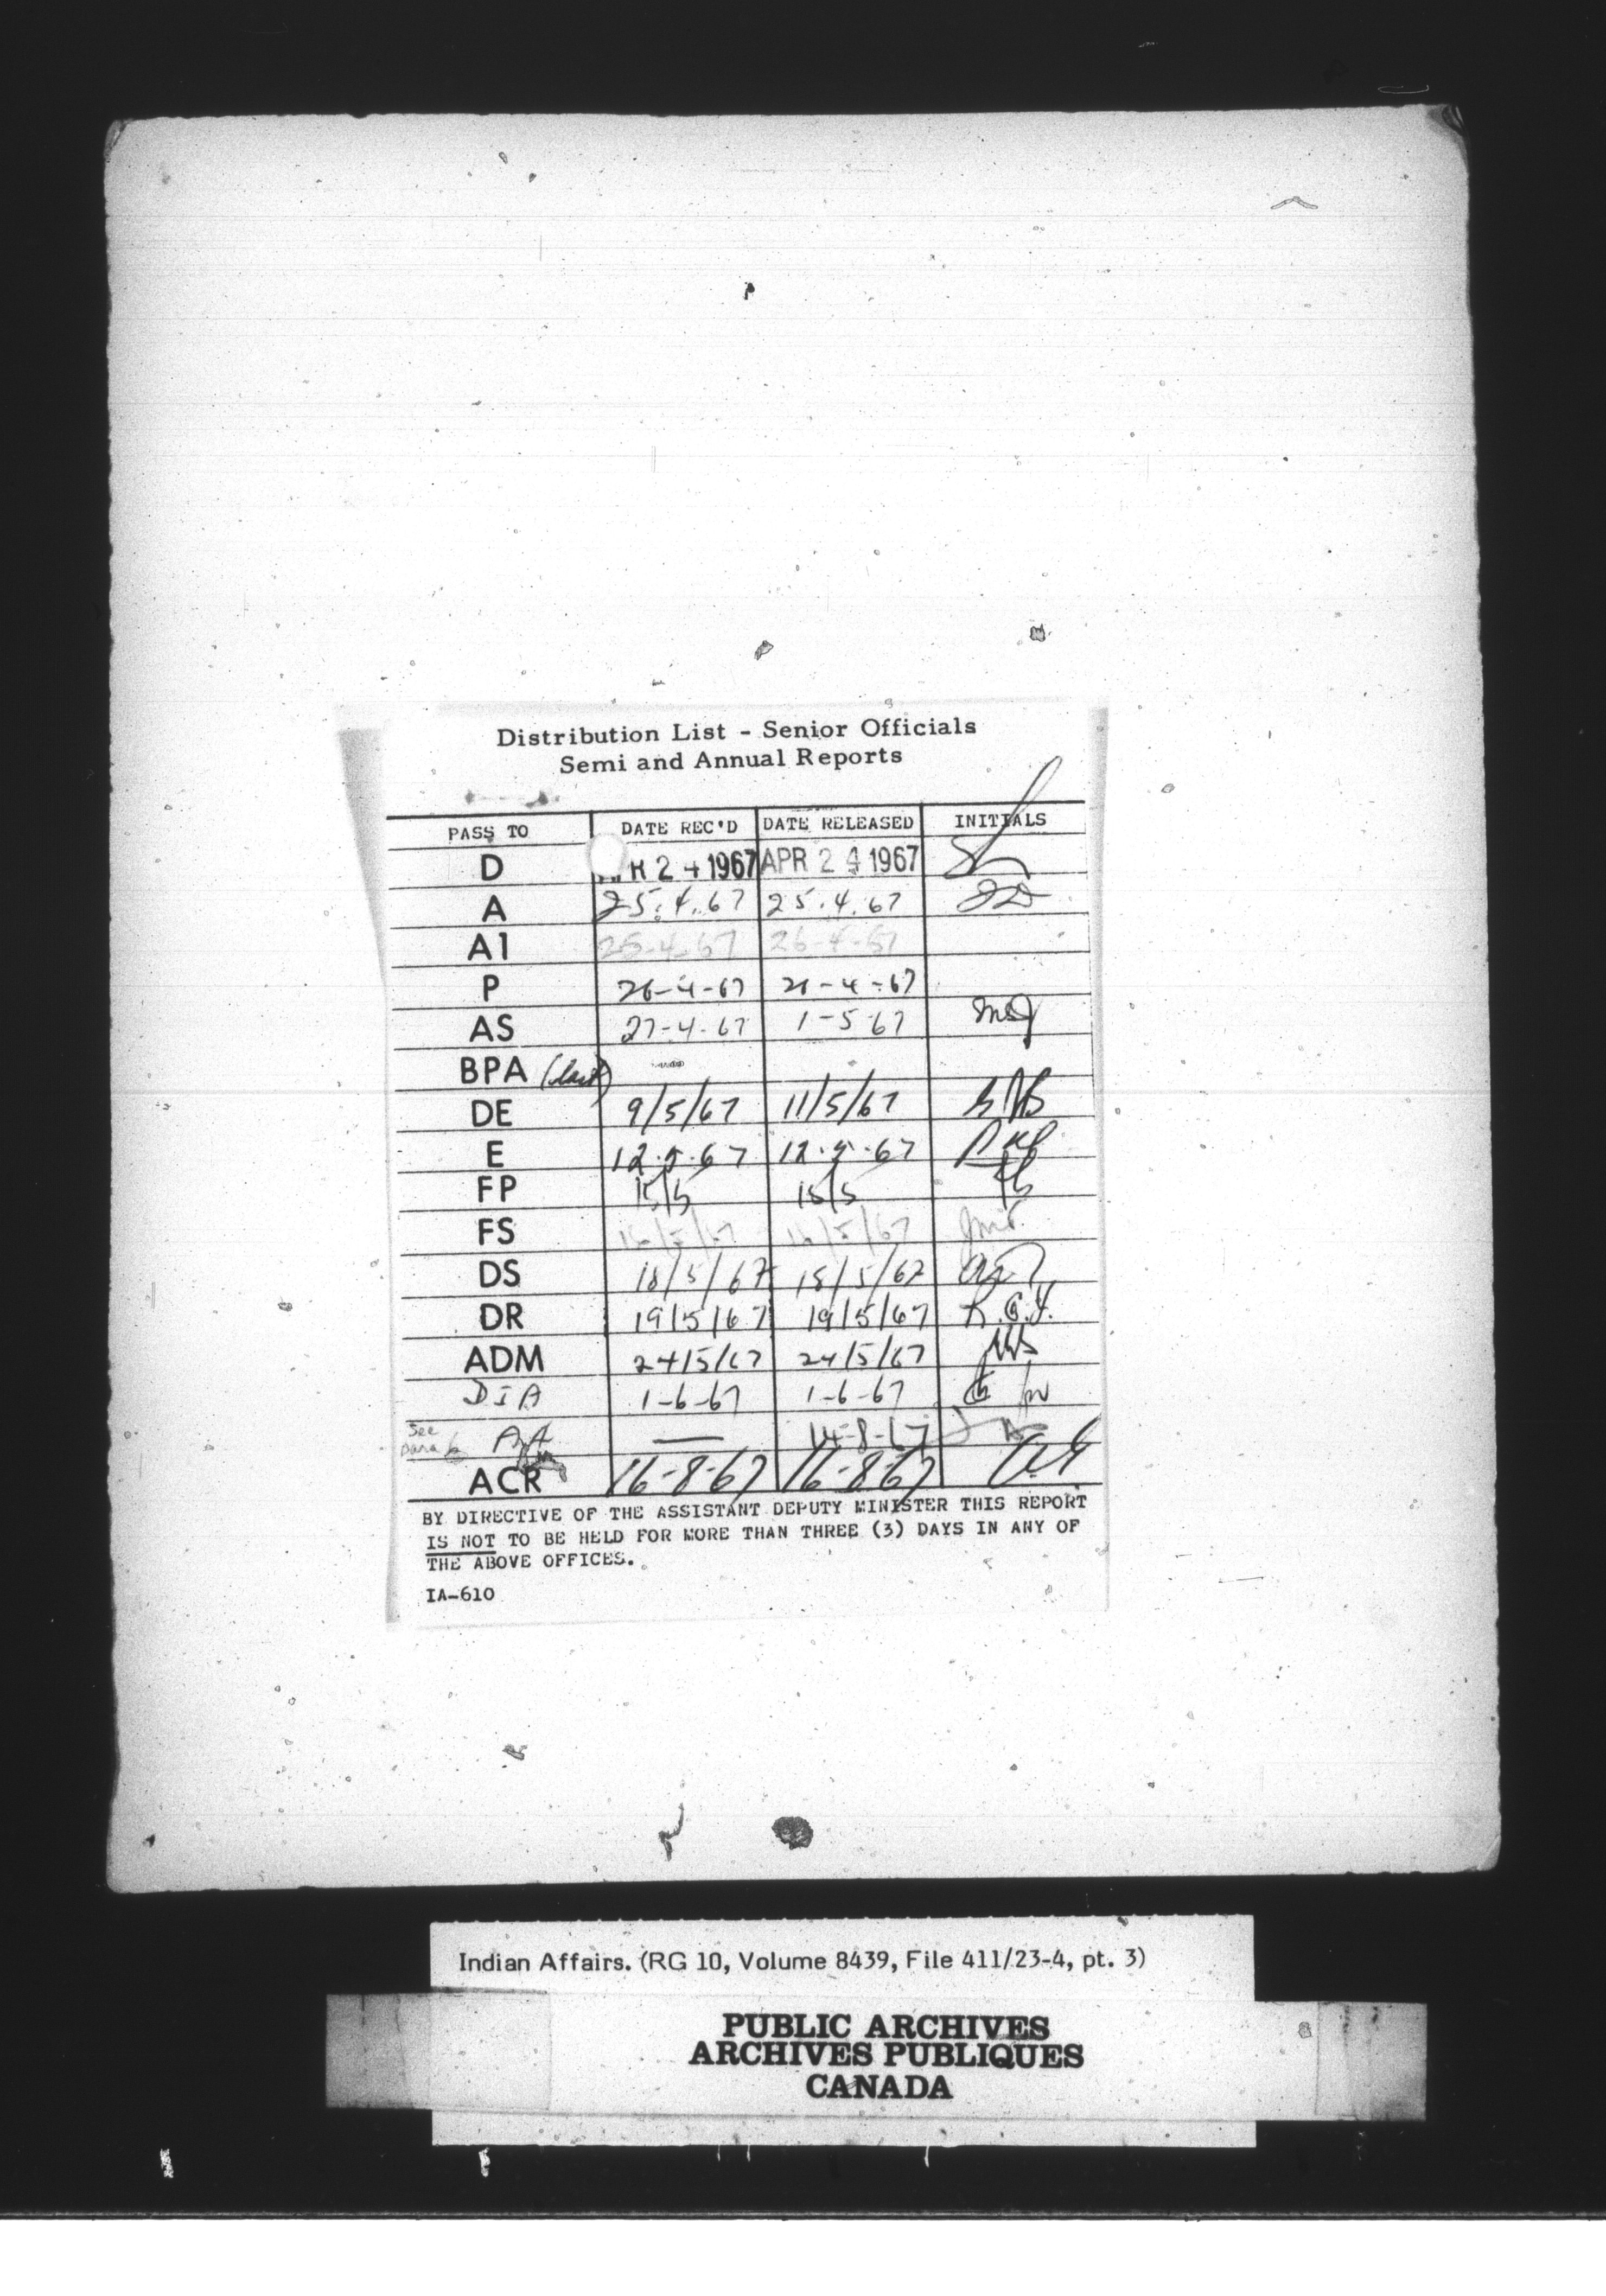 Distribution List - Senior Officials
Semi and Annual Reports
PASS TO DATE REC'D DATE RELEASED INITIALS
D R 24 1967 APR 24 1967
A 25.4.67 25.4.67
A1 25-4-67 26-4-67
P 26-4-67 26-4-67
AS 27-4-67 1-5-67
BPA (last)
DE 9/5/67 11/5/67
E 12.5.67 12.5.67
FP 15/5 15/5
FS 16/5/67 16/5/67
DS 18/5/67 18/5/67
DR 19/5/67 19/5/67 R.G.Y.
ADM 24/5/67 24/5/67
DIA 1-6-67 1-6-67
See para 6 — 14-8-67
ACR 16-8-67 16-8-67
BY DIRECTIVE OF THE ASSISTANT DEPUTY MINISTER THIS REPORT
IS NOT TO BE HELD FOR MORE THAN THREE (3) DAYS IN ANY OF
THE ABOVE OFFICES.
IA-610
Indian Affairs. (RG 10, Volume 8439, File 411/23-4, pt. 3)
PUBLIC ARCHIVES
ARCHIVES PUBLIQUES
CANADA